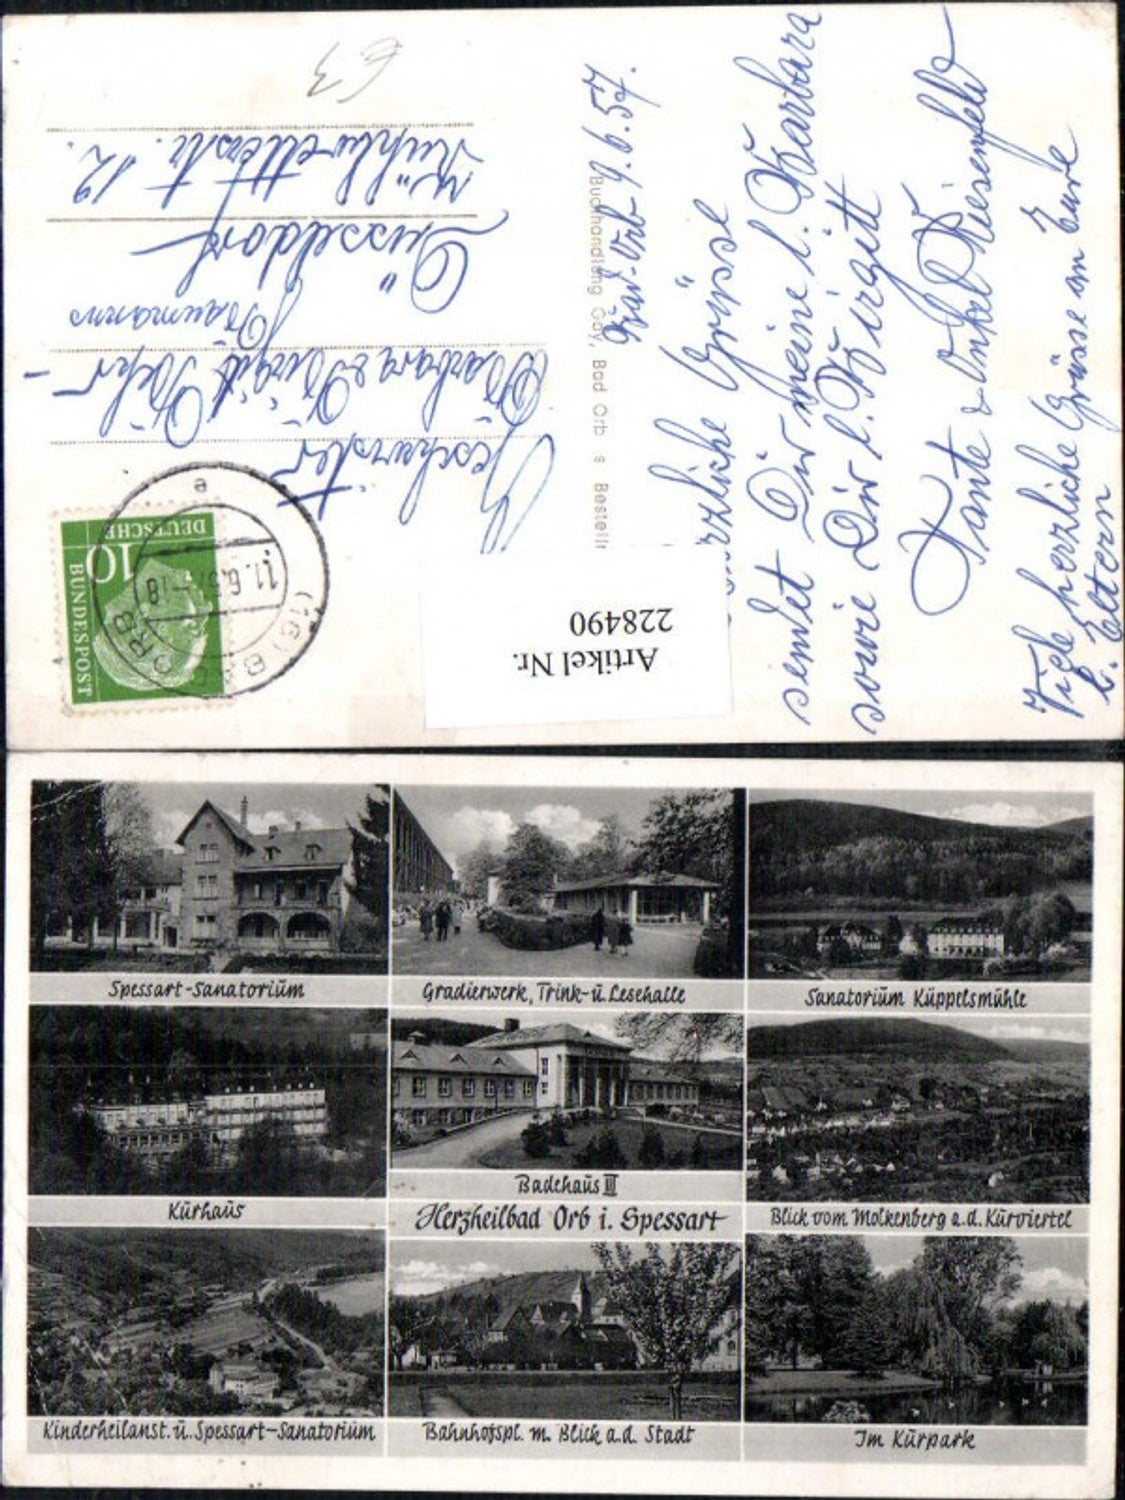 € 3
Bad-Orb 9.6.57.
Herzliche Grüsse
sendet Dir meine l. Barbara
sowie Dir l. Birgitt
Tante & Onkel Riesenfeld
Viele herzliche Grüsse an Eure
l. Eltern
Buchhandlung Gdy, Bad Orb
Bestellnr
DEUTSCHE
BUNDESPOST
10
(16) BAD ORB
11.6.57-18
a
Geschwister
Barbara & Birgit Behr-
Baumanns
Düsseldorf
Mühl
str. 12.
Artikel Nr.
228490
Spessart-Sanatorium
Gradierwerk, Trink-u. Lesehalle
Sanatorium Küppelsmühle
Kurhaus
Badehaus III
Herzheilbad Orb i. Spessart
Blick vom Molkenberg a.d. Kurviertel
Kinderheilanst. u. Spessart-Sanatorium
Bahnhofspl. m. Blick a.d. Stadt
Im Kurpark